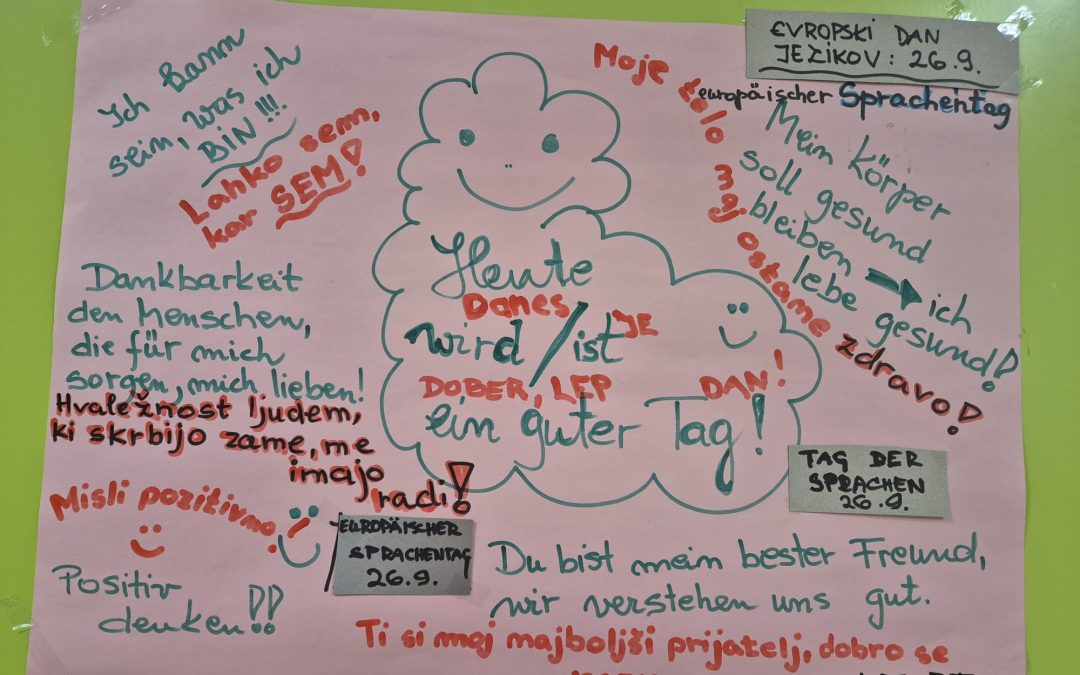 EVROPSKI DAN
JEZIKOV: 26.9.
europäischer Sprachentag
Ich kann
sein, was ich
BIN!!!
Lahko sem,
kar SEM!
Moje telo naj ostane zdravo!
Mein Körper
soll gesund
bleiben → ich
lebe gesund!
Heute
DANES
wird / ist JE
DOBER, LEP DAN!
ein guter Tag!
Dankbarkeit
den Menschen,
die für mich
sorgen, mich lieben!
Hvaležnost ljudem,
ki skrbijo zame, me
imajo
radi!
TAG DER
SPRACHEN
26.9.
Misli pozitivno.
Positiv
denken!!
EUROPÄISCHER
SPRACHENTAG
26.9.
Du bist mein bester Freund,
wir verstehen uns gut.
Ti si moj najboljši prijatelj, dobro se